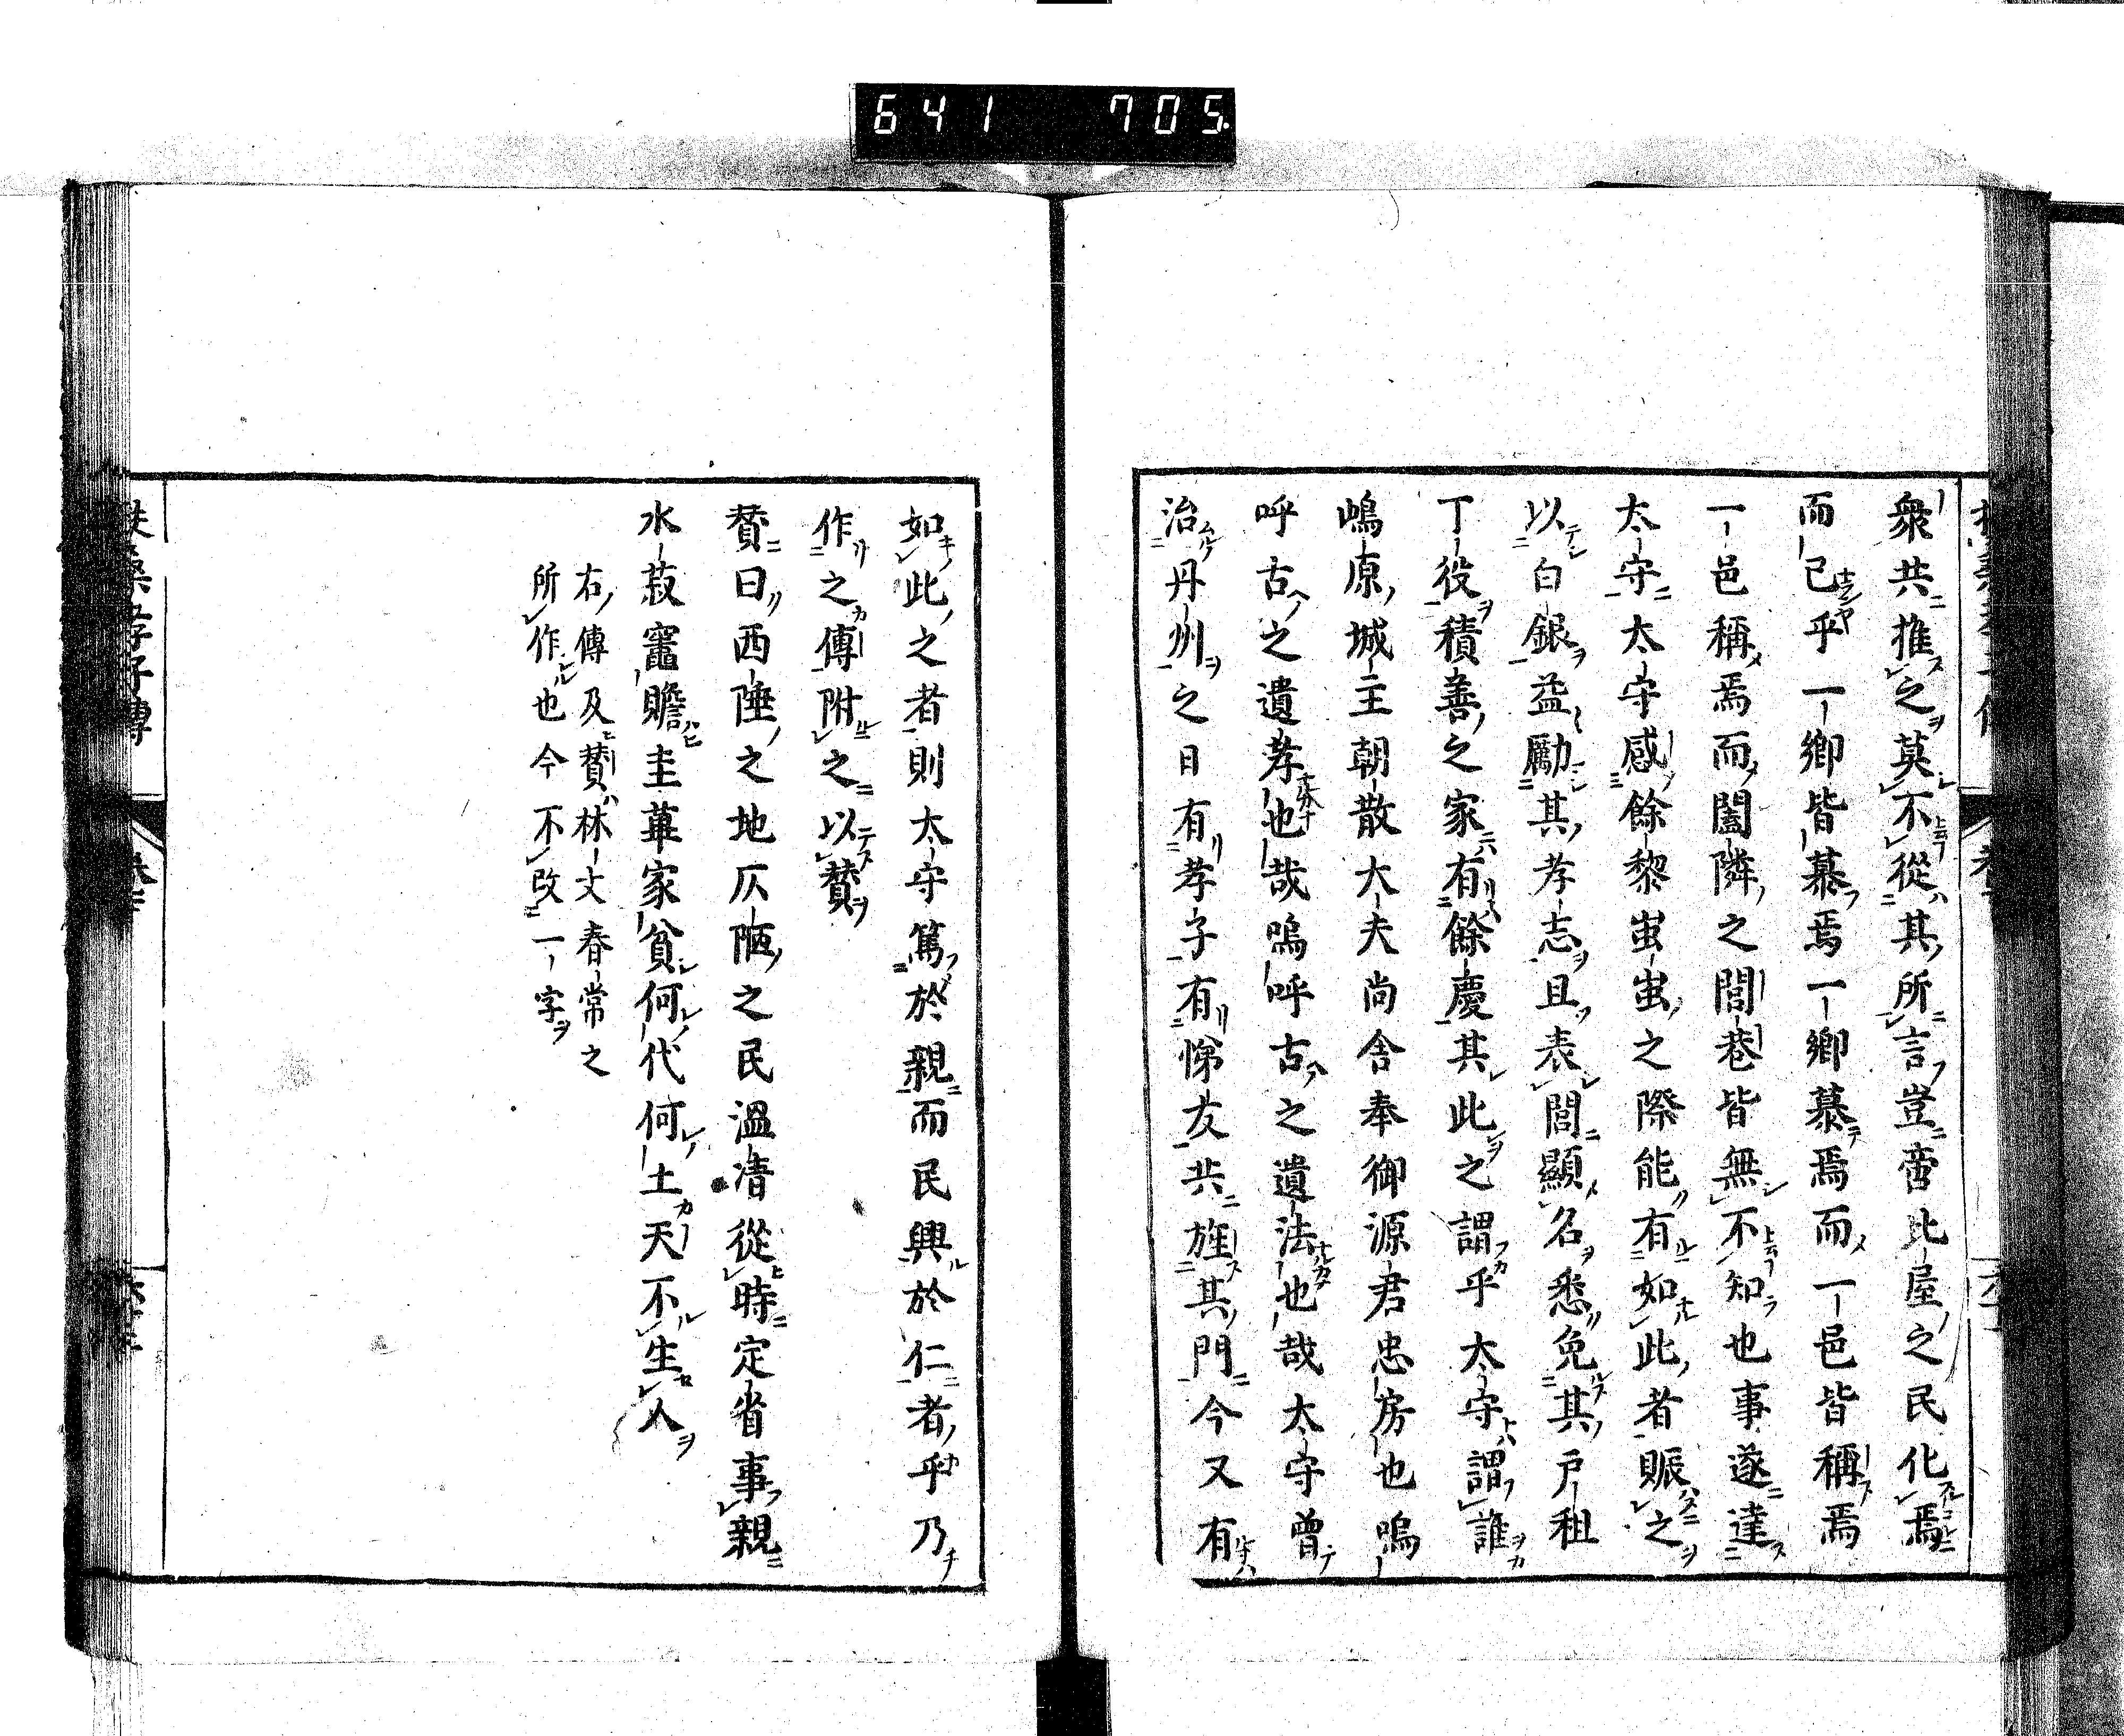 641 705
衆共推之莫不從其所言豈啻比屋之民化焉
而已乎一鄉皆慕焉一鄉慕焉而一邑皆稱焉
一邑稱焉而闔隣之閭巷皆無不知也事遂達
太守太守感餘黎蚩蚩之際能有如此者賑之
以白銀益勵其孝志且表閭顯名悉免其戸租
丁役積善之家有餘慶其此之謂乎太守謂誰
嶋原城主朝散大夫尚舍奉御源君忠房也嗚
呼古之遺孝也哉嗚呼古之遺法也哉太守曾
治丹州之日有孝子有悌友共旌其門今又有
如此之者則太守篤於親而民興於仁者乎乃
作之傳附之以賛
賛曰西陲之地仄陋之民溫凊從時定省事親
水菽竈贍圭蓽家貧何代何土天不生人
右傳及賛林丈春常之
所作也今不改一字
扶桑孝子傳